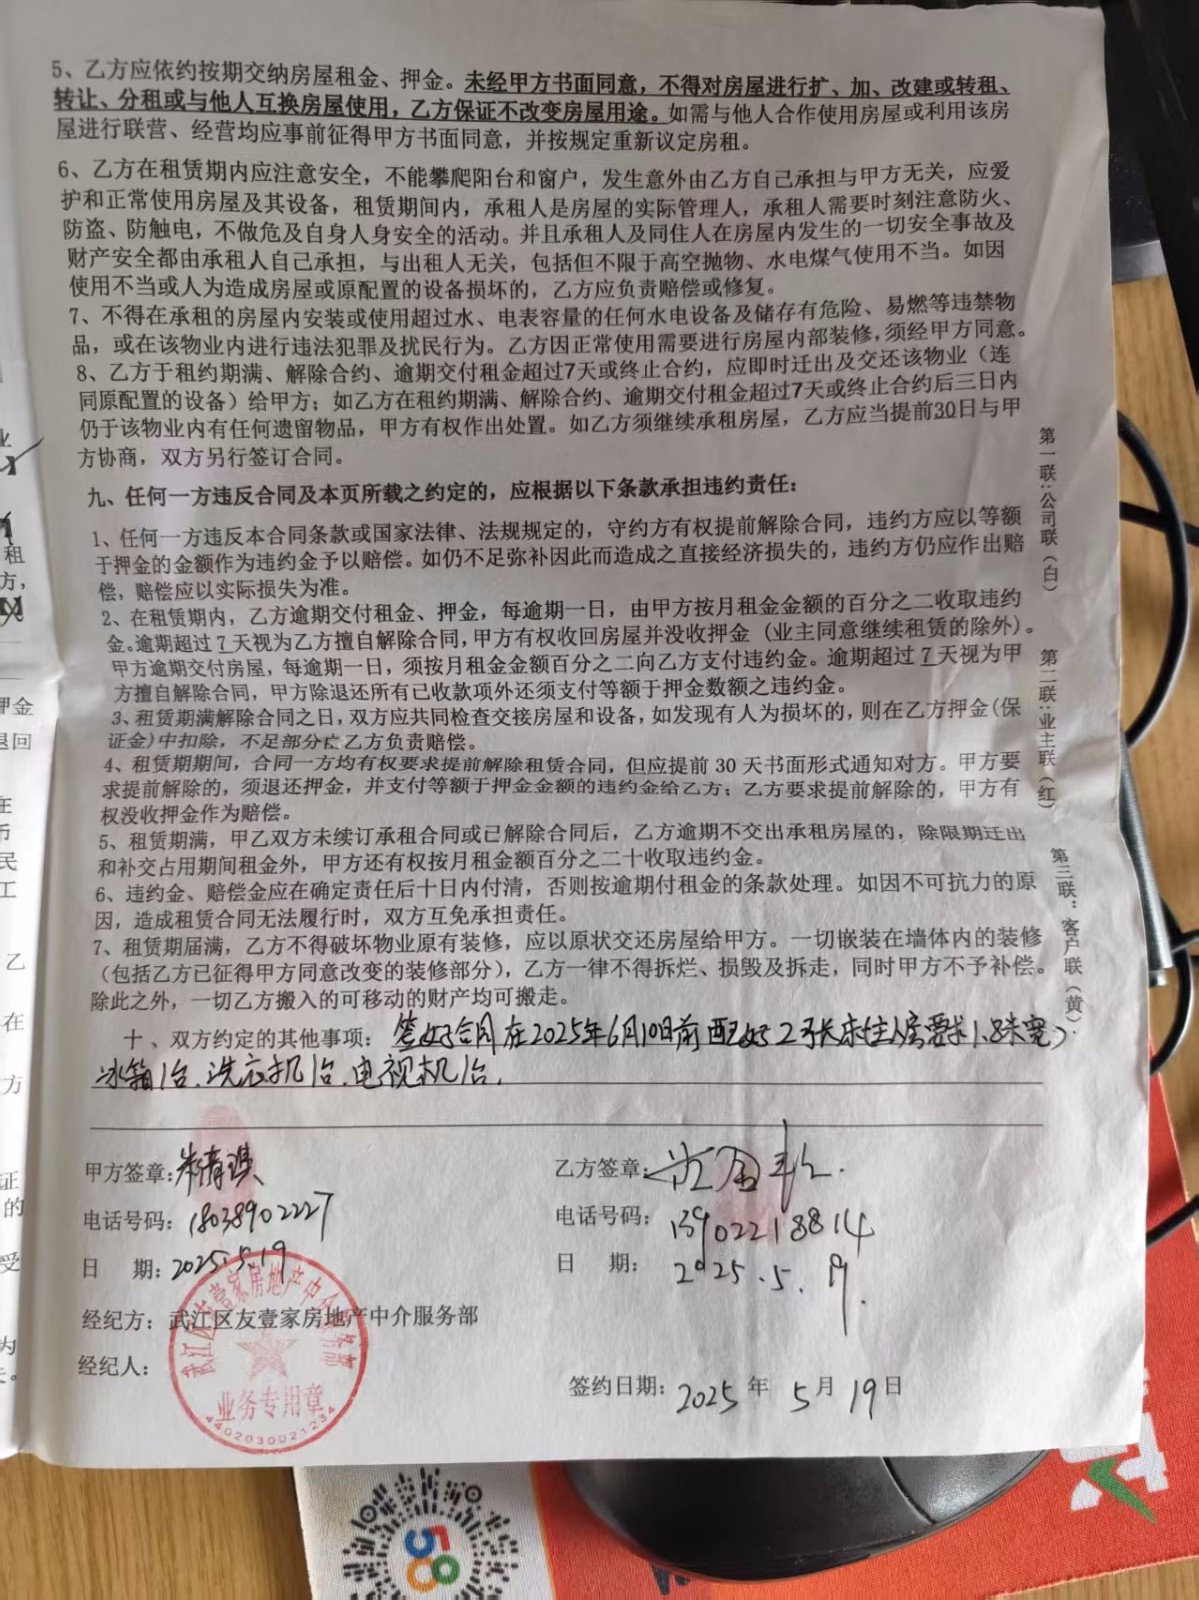 5、乙方应依约按期交纳房屋租金、押金。未经甲方书面同意，不得对房屋进行扩、加、改建或转租、
转让、分租或与他人互换房屋使用，乙方保证不改变房屋用途。如需与他人合作使用房屋或利用该房
屋进行联营、经营均应事前征得甲方书面同意，并按规定重新议定房租。
6、乙方在租赁期内应注意安全，不能攀爬阳台和窗户，发生意外由乙方自己承担与甲方无关，应爱
护和正常使用房屋及其设备，租赁期间内，承租人是房屋的实际管理人，承租人需要时刻注意防火、
防盗、防触电，不做危及自身人身安全的活动。并且承租人及同住人在房屋内发生的一切安全事故及
财产安全都由承租人自己承担，与出租人无关，包括但不限于高空抛物、水电煤气使用不当。如因
使用不当或人为造成房屋或原配置的设备损坏的，乙方应负责赔偿或修复。
7、不得在承租的房屋内安装或使用超过水、电表容量的任何水电设备及储存有危险、易燃等违禁物
品，或在该物业内进行违法犯罪及扰民行为。乙方因正常使用需要进行房屋内部装修，须经甲方同意。
8、乙方于租约期满、解除合约、逾期交付租金超过7天或终止合约，应即时迁出及交还该物业（连
同原配置的设备）给甲方；如乙方在租约期满、解除合约、逾期交付租金超过7天或终止合约后三日内
仍于该物业内有任何遗留物品，甲方有权作出处置。如乙方须继续承租房屋，乙方应当提前30日与甲
方协商，双方另行签订合同。
九、任何一方违反合同及本页所载之约定的，应根据以下条款承担违约责任：
1、任何一方违反本合同条款或国家法律、法规规定的，守约方有权提前解除合同，违约方应以等额
于押金的金额作为违约金予以赔偿。如仍不足弥补因此而造成之直接经济损失的，违约方仍应作出赔
偿，赔偿应以实际损失为准。
2、在租赁期内，乙方逾期交付租金、押金，每逾期一日，由甲方按月租金金额的百分之二收取违约
金。逾期超过 7 天视为乙方擅自解除合同，甲方有权收回房屋并没收押金（业主同意继续租赁的除外）。
甲方逾期交付房屋，每逾期一日，须按月租金金额百分之二向乙方支付违约金。逾期超过 7 天视为甲
方擅自解除合同，甲方除退还所有已收款项外还须支付等额于押金数额之违约金。
3、租赁期满解除合同之日，双方应共同检查交接房屋和设备，如发现有人为损坏的，则在乙方押金（保
证金）中扣除，不足部分亡乙方负责赔偿。
4、租赁期期间，合同一方均有权要求提前解除租赁合同，但应提前 30 天书面形式通知对方。甲方要
求提前解除的，须退还押金，并支付等额于押金金额的违约金给乙方；乙方要求提前解除的，甲方有
权没收押金作为赔偿。
5、租赁期满，甲乙双方未续订承租合同或已解除合同后，乙方逾期不交出承租房屋的，除限期迁出
和补交占用期间租金外，甲方还有权按月租金额百分之二十收取违约金。
6、违约金、赔偿金应在确定责任后十日内付清，否则按逾期付租金的条款处理。如因不可抗力的原
因，造成租赁合同无法履行时，双方互免承担责任。
7、租赁期届满，乙方不得破坏物业原有装修，应以原状交还房屋给甲方。一切嵌装在墙体内的装修
（包括乙方已征得甲方同意改变的装修部分），乙方一律不得拆烂、损毁及拆走，同时甲方不予补偿。
除此之外，一切乙方搬入的可移动的财产均可搬走。
十、双方约定的其他事项：签好合同在2025年6月10日前配好2张床(主房要求1.8米宽)
冰箱1台、洗衣机1台、电视机1台.
甲方签章：朱清琪
电话号码：18038902227
日 期：2025.5.19
经纪方：武江区友壹家房地产中介服务部
经纪人：
乙方签章：
电话号码：13902218814
日 期：2025.5.19.
签约日期：2025 年 5 月 19 日
武江区友壹家房地产中介服务部
业务专用章
4402030021234
第一联：公司联（白）
第二联：业主联（红）
第三联：客户联（黄）.
58